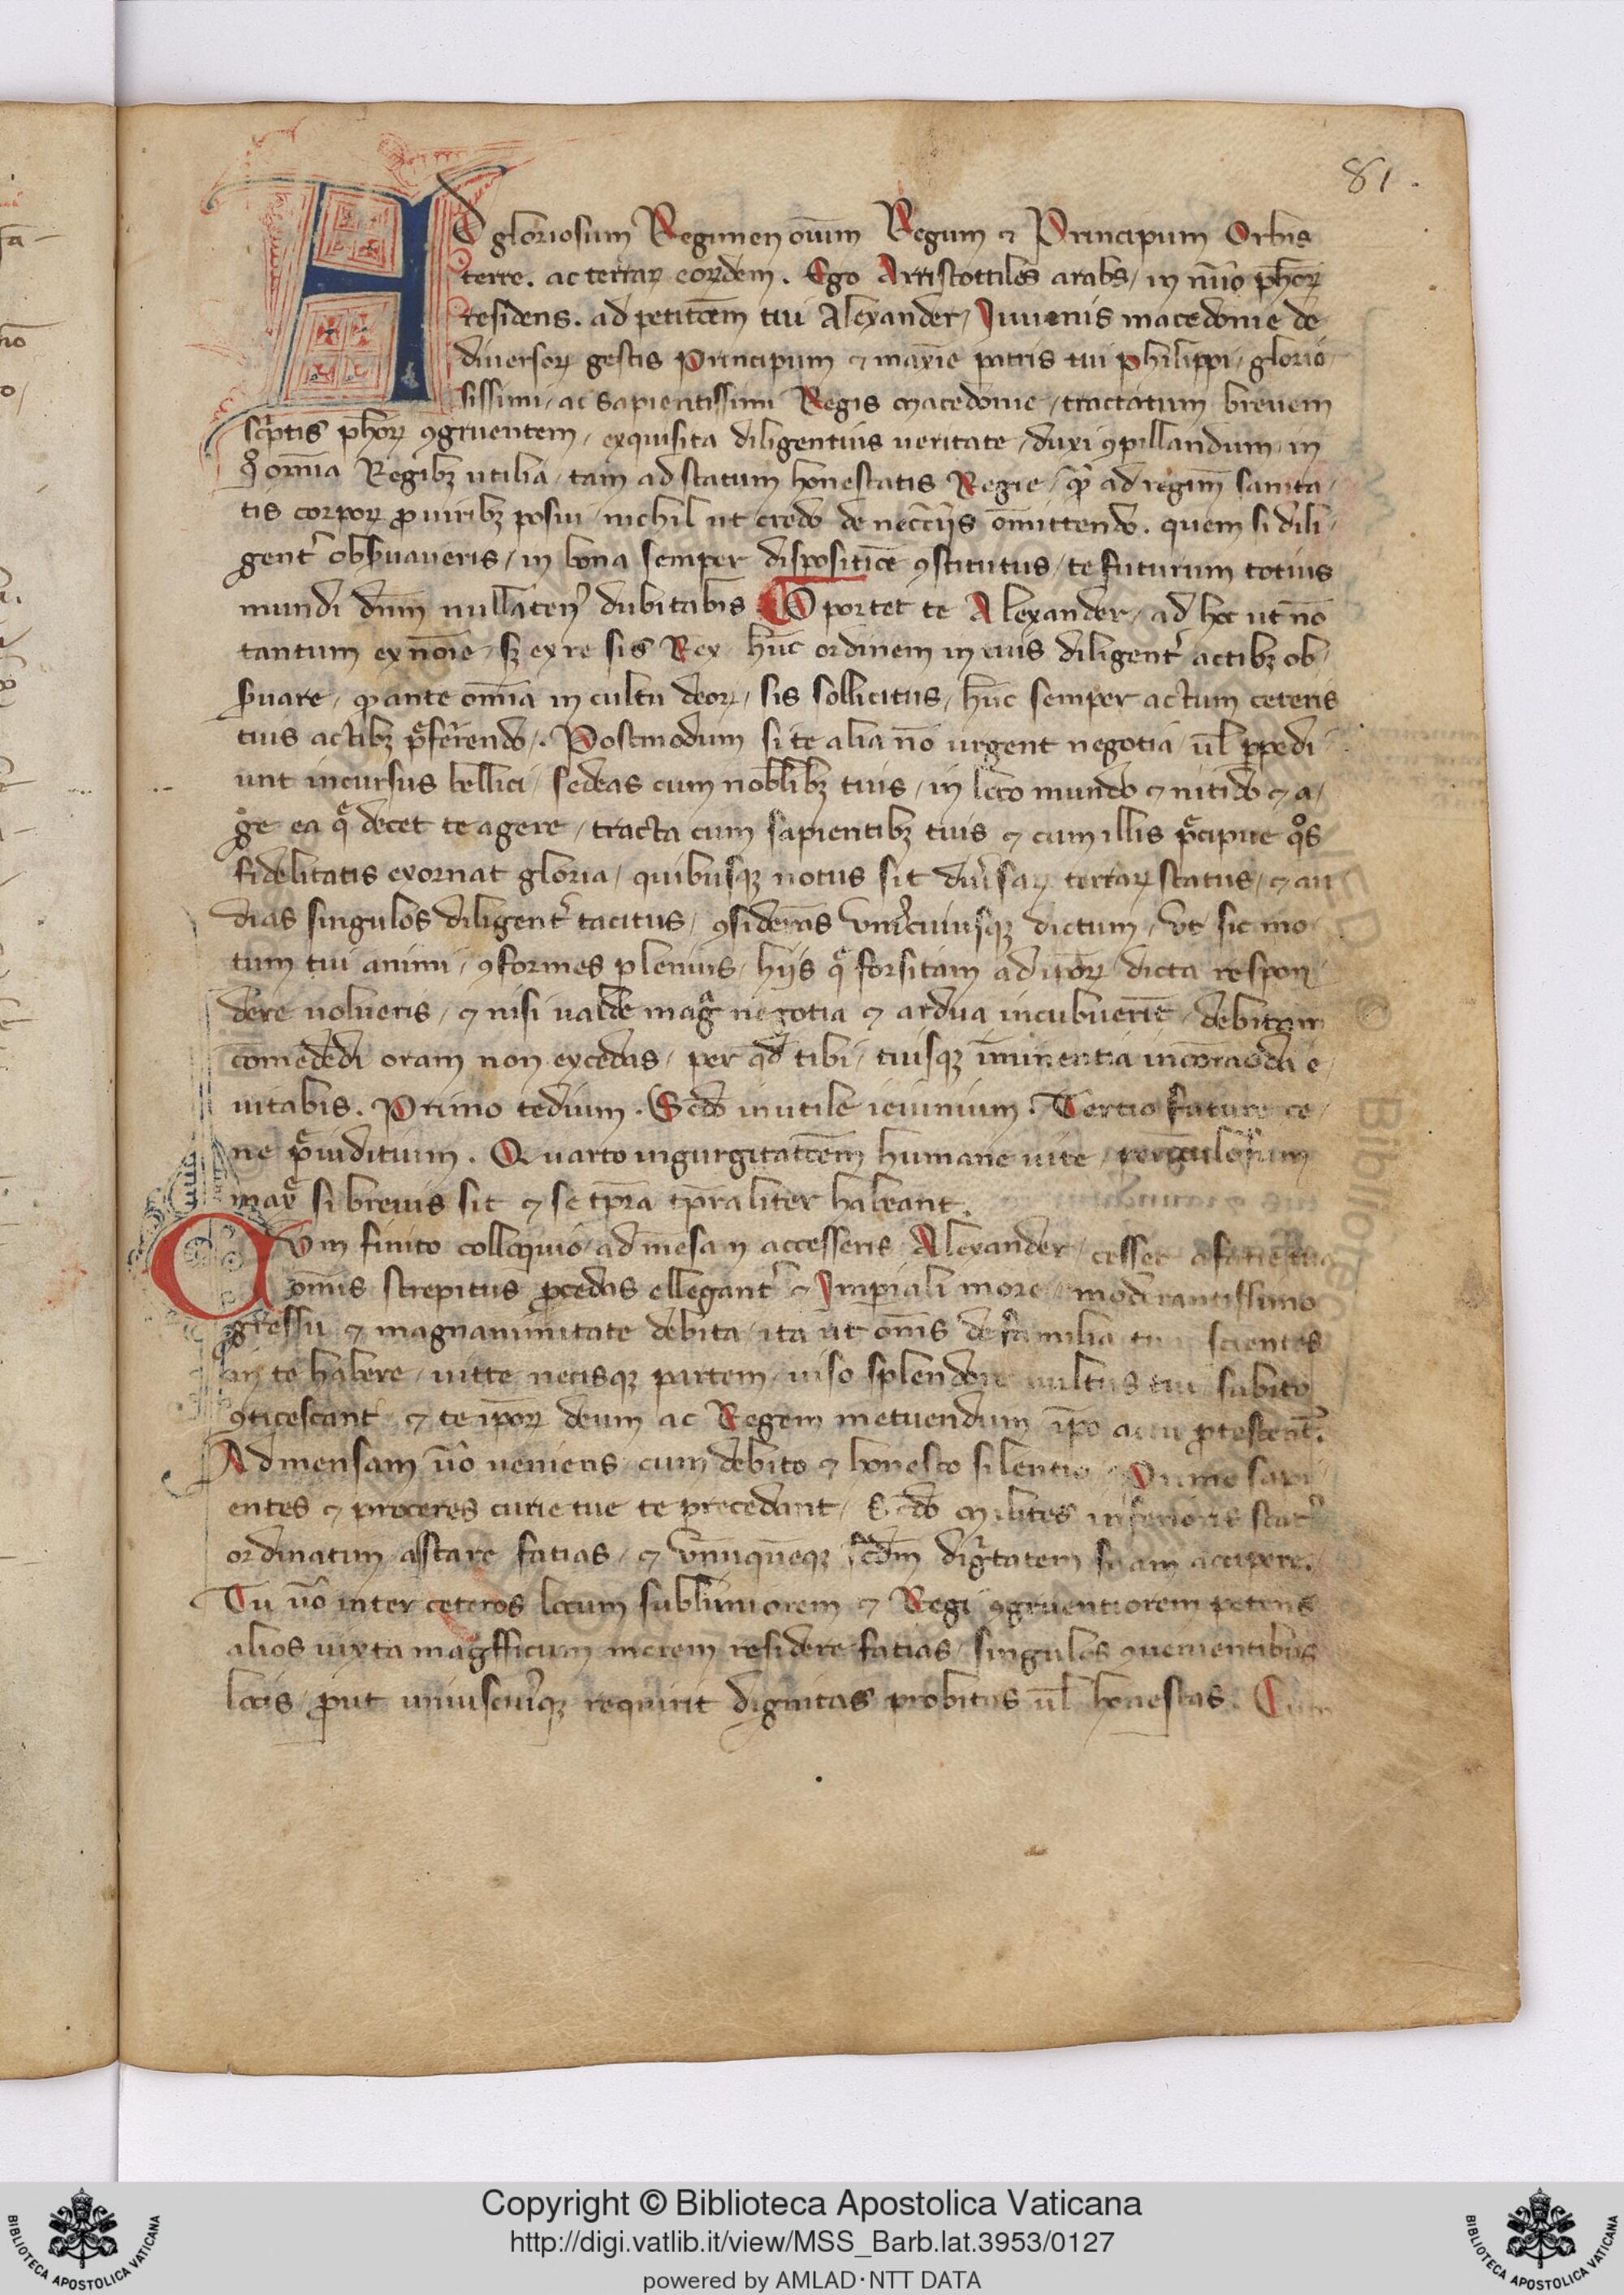 81.
AD gloriosum Regimen oīum Regum ⁊ Principum Orbis
terre. ac terraꝝ eorꝝdem. Ego Arristottiles arabs, in nūo ph̄oꝝ
residens. ad petitōem tui Alexander, Iuuenis macedonie de
diuersoꝝ gestis Principum ⁊ maxīe patris tui philippi, glorio,
sissimi, ac sapientissimi Regis macedonie, tractatum breuem
sc̄ptis ph̄oꝝ ꝯgruentem, exquisita diligentius ueritate, duxi ꝯpillandum, in
qͦ omīa Regibꝫ utilia, tam ad statum honestatis Regie, qͣ ad regim̄ sanita,
tis corpoꝝ ꝓ uiribꝫ posui, nichil ut credo de necc̄ijs omittendo. quem si dili,
gentͬ obẜuaueris, in bona semper dispositiōe ꝯstitutus, te futurum totius
mundi dn̄m nullatenꝰ dubitabis Oportet te Alexander, ad hoc ut nō
tantum ex nōie, sꝫ ex re sis Rex, hūc ordinem in tuis diligentͬ actibꝫ ob,
ẜuare, ꝙ ante omīa in cultu deoꝝ, sis sollicitus, hūc semper actum ceteris
tuis actibꝫ p̄ferendo. Postmodum si te alia nō urgent negotia, ul̄ ꝑpedi
unt incursus bellici, sedeas cum nobl̄ibꝫ tuis, in loco mundo ⁊ nitido ⁊ a,
ge ea qͣ decet te agere, tracta cum sapientibꝫ tuis ⁊ cum illis p̄cipue qͦs
fidelitatis exornat gloria, quibusqꝫ notus sit diu̓saꝝ terraꝝ status, ⁊ au
dias singulos diligentͬ tacitus, ꝯsiderās vniꝰcuiusqꝫ dictum, vt sic mo
tum tui animi, ꝯformes plenius, hijs qͣ forsitam ad iꝑoꝝ dicta respon
dere uolueris, ⁊ nisi ualde magͣ negotia ⁊ ardua incubuerīt, debitam
comededi oram non excedas, per qd̄ tibi, tuisqꝫ īminentia incomoda e,
uitabis. Primo tedium. Scd̄o inutile ieiunium. Tertio future ce,
ne p̄iuditium. Quarto ingurgitatōem humane uite, periculosum
maxͤ si breuis sit ⁊ se tp̄ra tp̄raliter habeant.
Cvm finito colloquio, ad mesam accesseris Alexander, cesset a facie tua
omīs strepitus ꝓcedas ellegantͬ ⁊ Imperiali more, moderantissimo
gressu ⁊ magnanimitate debita, ita ut omīs de familia tua scientes
in te habere, uitte necisqꝫ partem, uiso splendore uultus tui subito
ꝯticescant ⁊ te ip̄oꝝ deum ac Regem metuendum ip̄o actu ꝓtestent̄.
Ad mensam u̓o ueniens cum debito ⁊ honesto silentio, Primo sapi,
entes ⁊ proceres curie tue te precedant, Scd̄o milites inferioris statꝰ
ordinatim astare facias, ⁊ vnūquēqꝫ scd̄m dignͥtatem suam accipere.
Tu u̓o inter ceteros locum sublimiorem ⁊ Regi ꝯgruentiorem petens
alios iuxta magͥfficum morem residere facias, singulos ꝯuenientibus
locis, ꝓut uniuscuiꝰqꝫ requirit dignitas probitas ul̄ honestas. Cum
Copyright © Biblioteca Apostolica Vaticana
http://digi.vatlib.it/view/MSS_Barb.lat.3953/0127
powered by AMLAD·NTT DATA
BIBLIOTECA APOSTOLICA VATICANA
BIBLIOTECA APOSTOLICA VATICANA